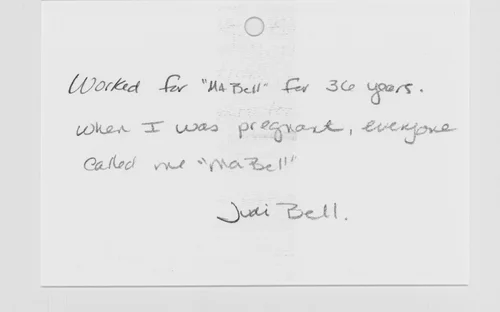 Worked for "MA Bell" for 36 years.
When I was pregnant, everyone
called me "Ma Bell"
Judi Bell.